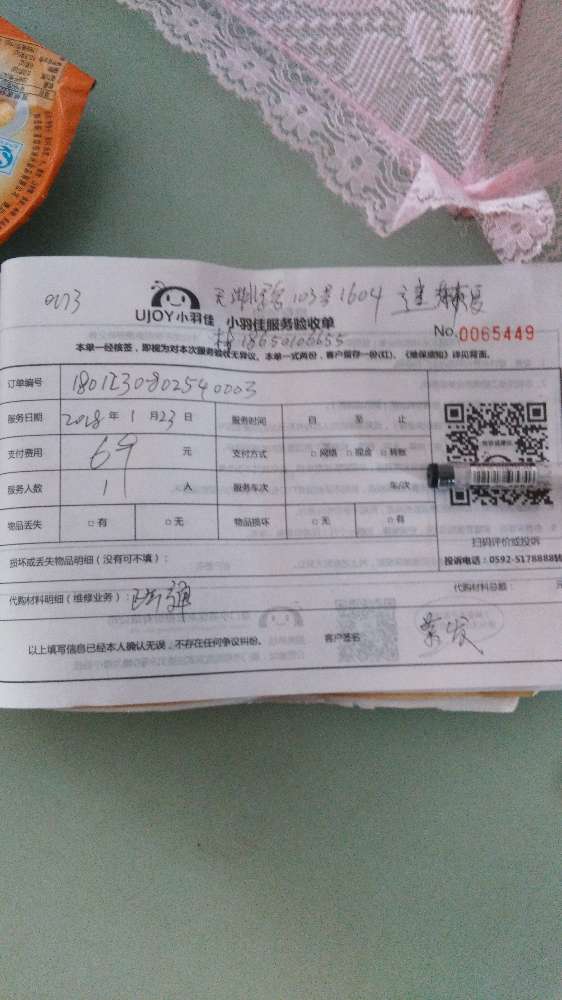 0173
UJOY小羽佳
103号1604
小羽佳服务验收单
18650106655
No.0065449
本单一经核签，即视为对本次服务验收无异议。本单一式两份，客户留存一份(红)。《维保须知》详见背面。
订单编号 1801230802540003
服务日期 2018 年 1 月 23 日 服务时间 自 至 止
支付费用 69 元 支付方式 □ 网络 □ 现金 □ 转账
服务人数 1 人 服务车次 车/次
物品丢失 □ 有 □ 无 物品损坏 □ 无 □ 有
扫码评价或投诉
投诉电话：0592-5178888转
损坏或丢失物品明细（没有可不填）：
代购材料明细（维修业务）： 代购材料总额： 元
以上填写信息已经本人确认无误，不存在任何争议纠纷。 客户签名